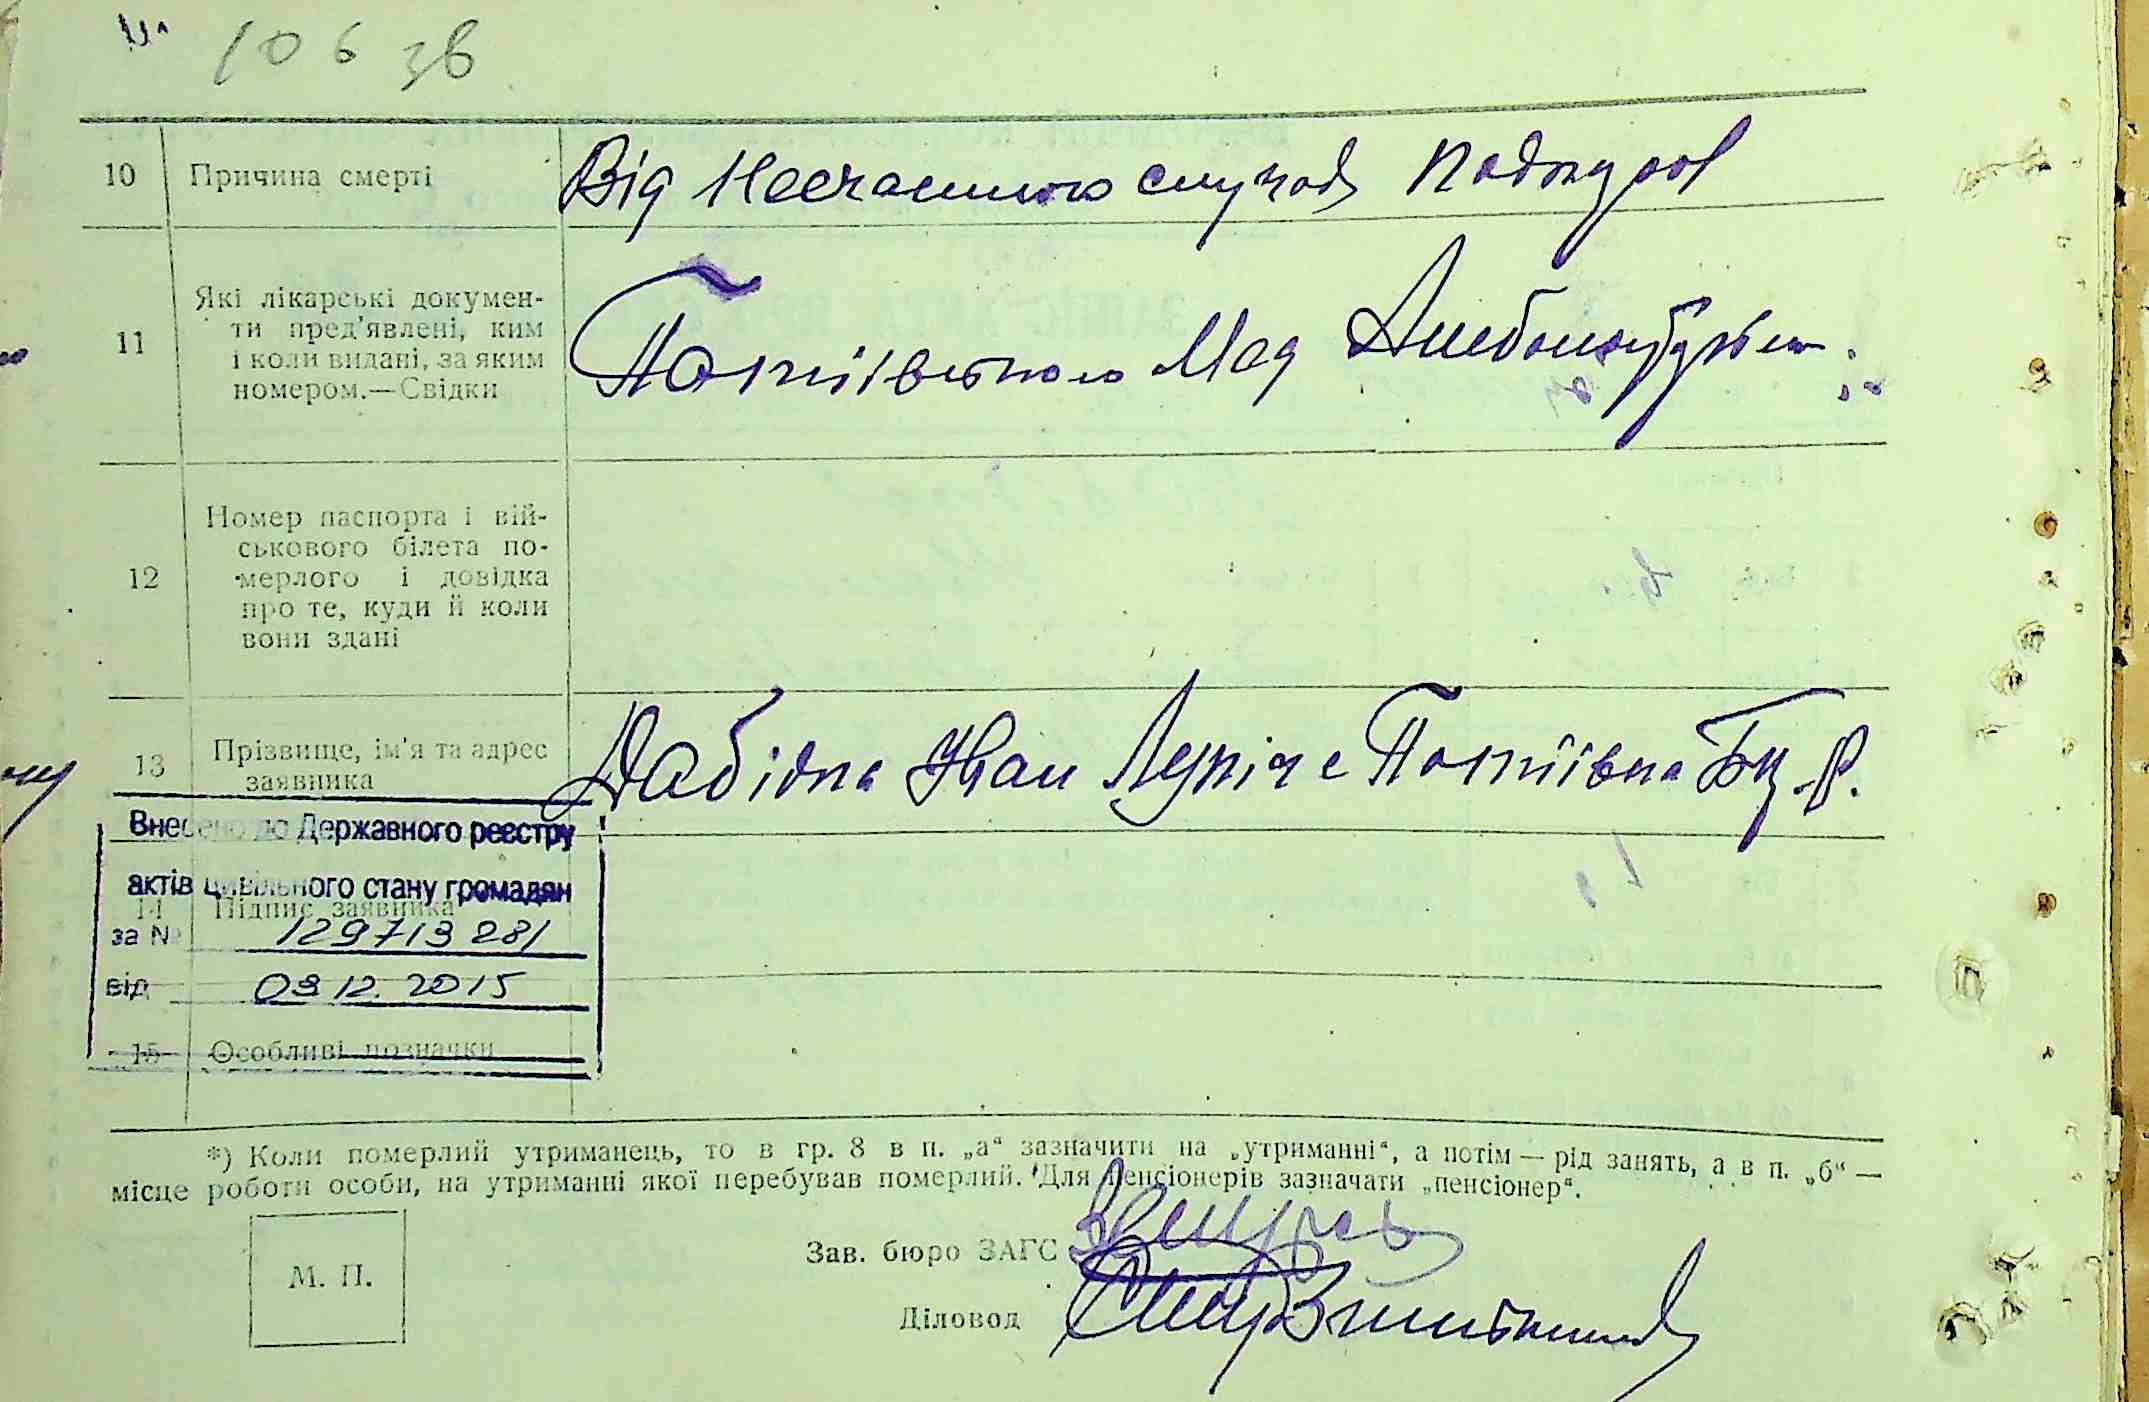 106 зв
10 Причина смерті Від Несчасного случая
11 Які лікарські докумен-
ти пред'явлені, ким
і коли видані, за яким
номером.—Свідки
Потіївського Мед
12 Номер паспорта і вій-
ськового білета по-
мерлого і довідка
про те, куди й коли
вони здані
13 Прізвище, ім'я та адрес
заявника
Іван с Потіївка
Внесено до Державного реєстру
актів цивільного стану громадян
14 Підпис заявника
за № 129713281
від 03.12.2015
15 Особливі позначки
*) Коли померлий утриманець, то в гр. 8 в п. „а“ зазначити на „утриманні“, а потім — рід занять, а в п. „б“ —
місце роботи особи, на утриманні якої перебував померлий. Для пенсіонерів зазначати „пенсіонер“.
Зав. бюро ЗАГС
М. П.
Діловод